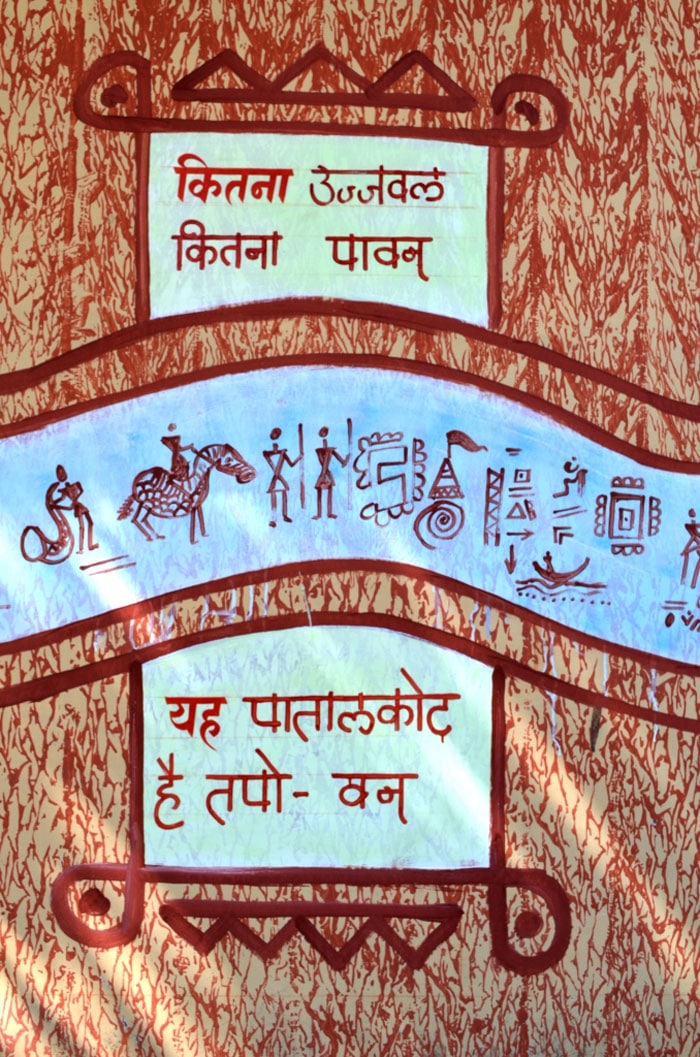 कितना उज्जवल
कितना पावन
यह पातालकोट
है तपो- वन